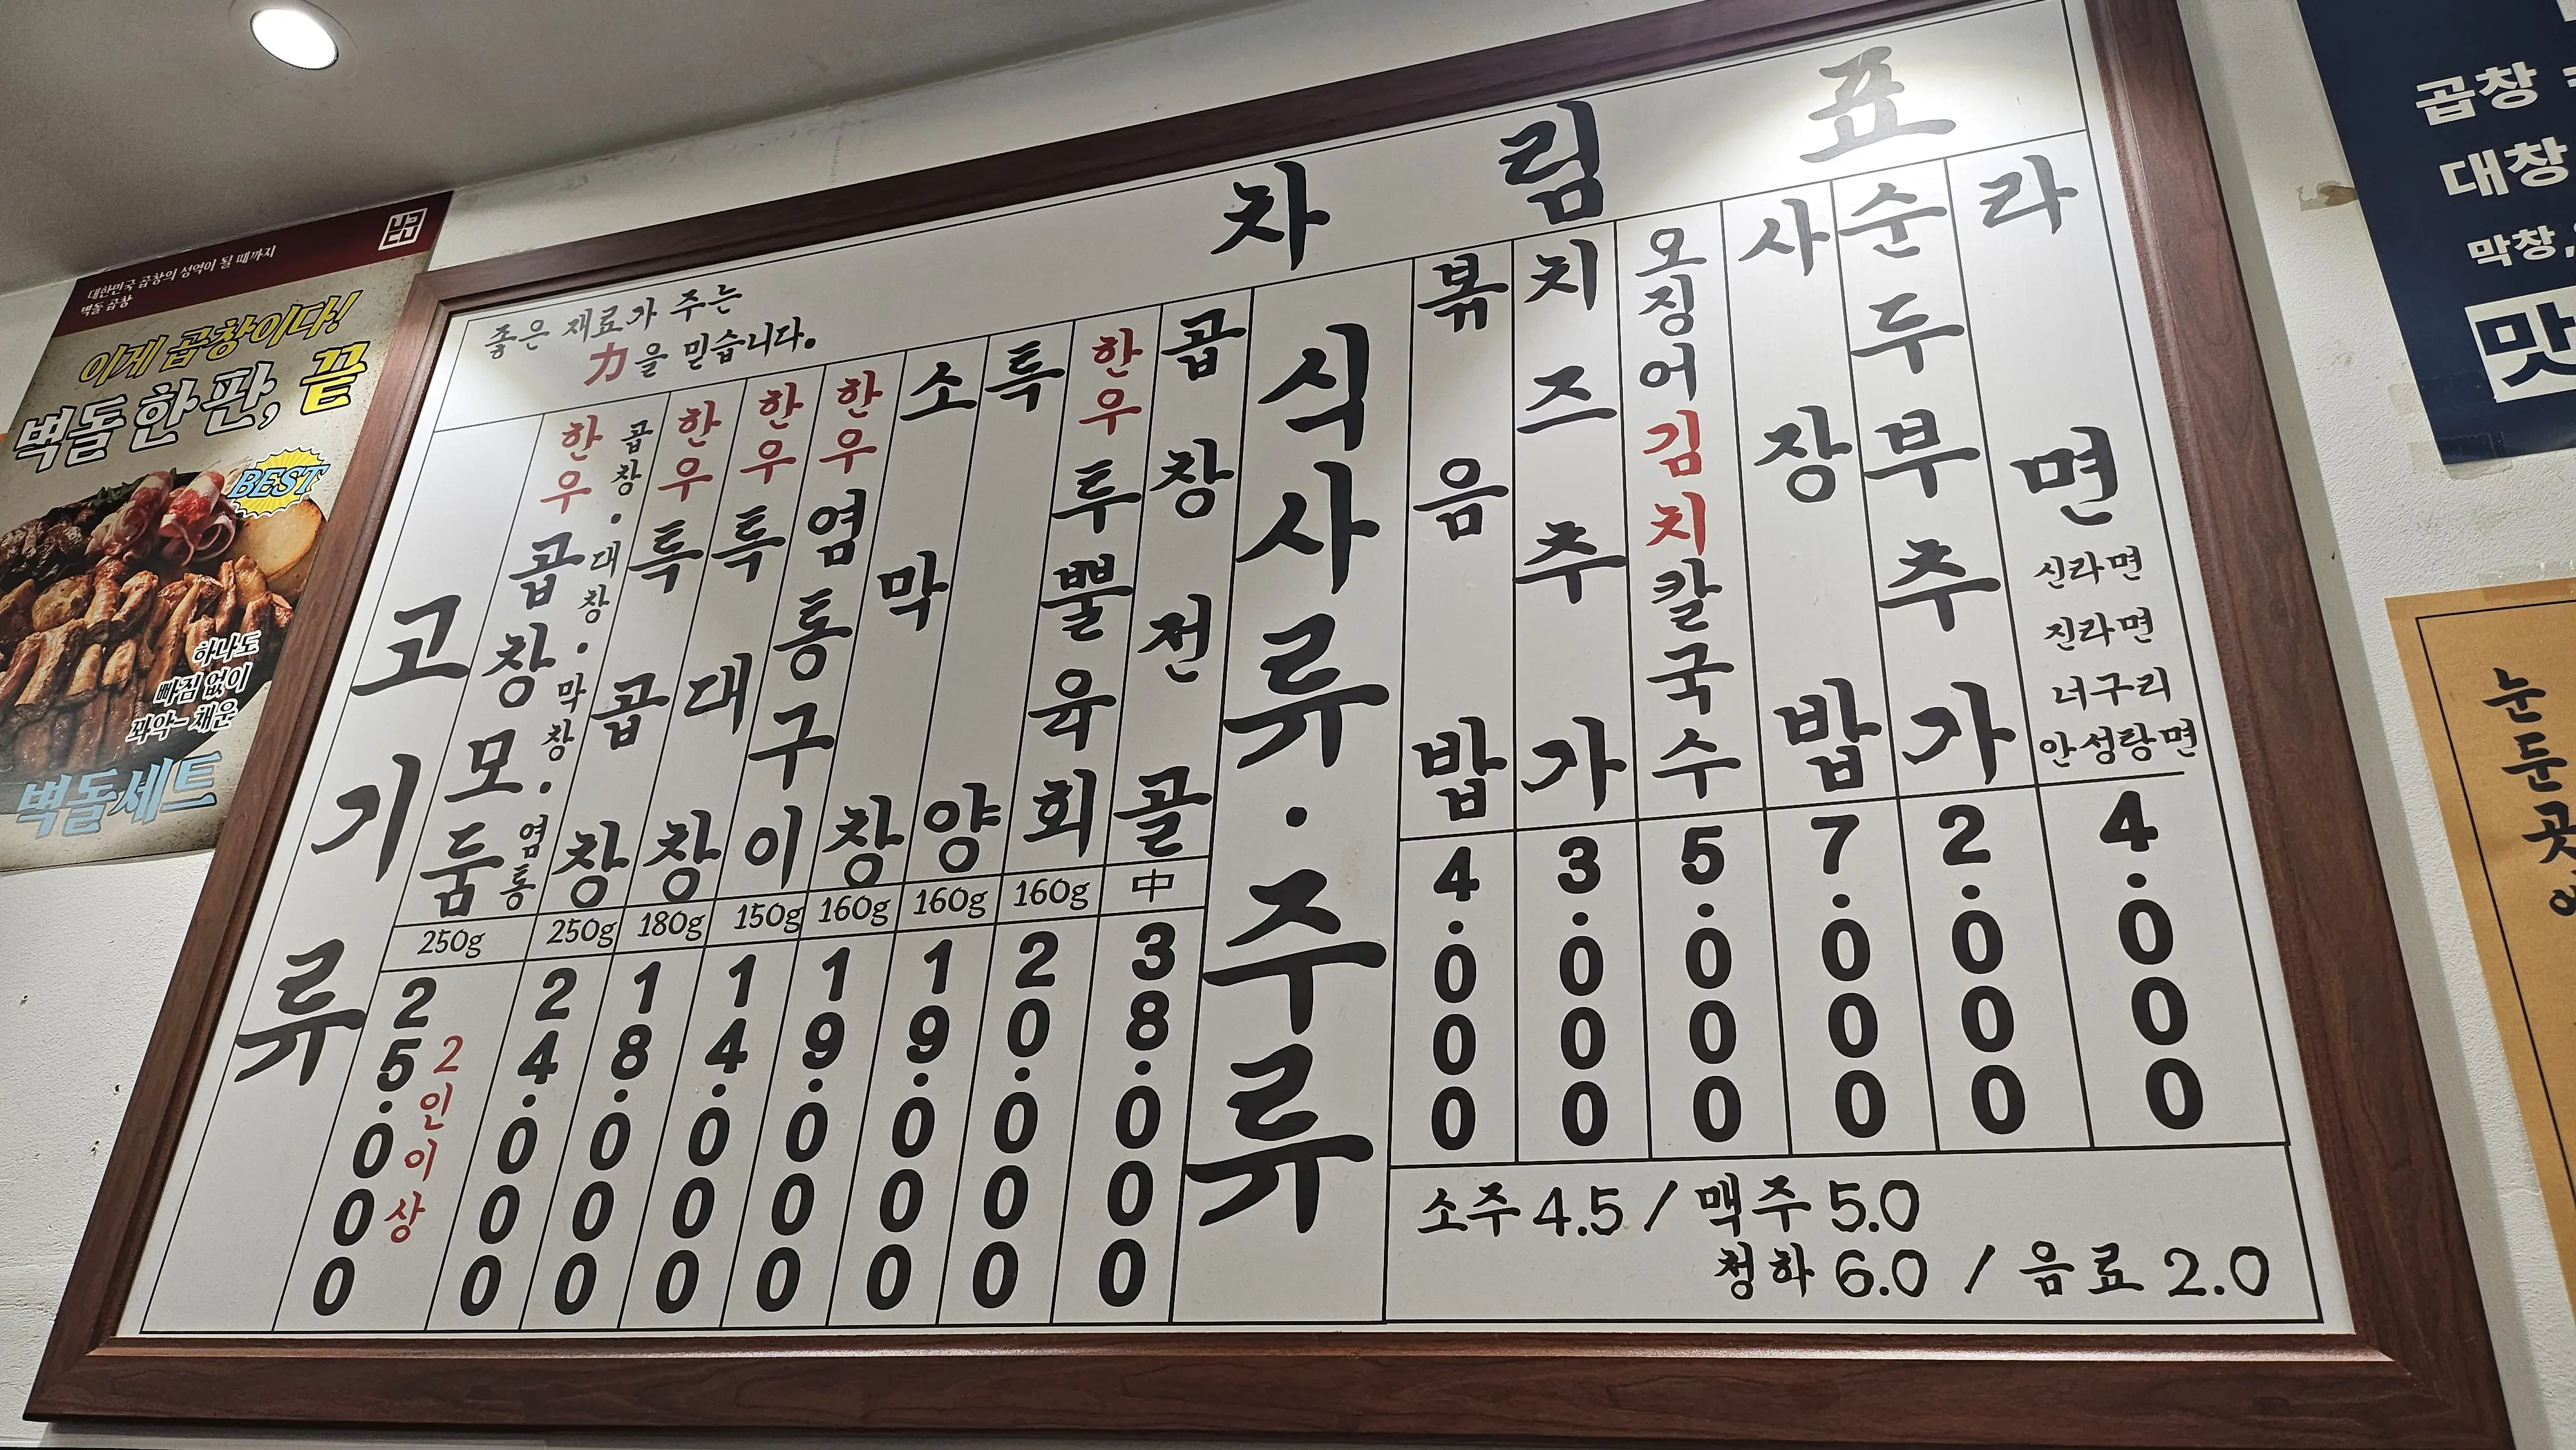 대한민국 곱창의 성역이 될 때까지
벽돌 곱창
이게 곱창이다!
벽돌 한 판, 끝
BEST
하나도
빠짐 없이
꽈악- 채운
벽돌세트
차림표
좋은 재료가 주는
力을 믿습니다.
고기류
한우 곱창모둠
곱창·대창·막창·염통
250g
25.000
2인이상
한우 특곱창
250g
24.000
한우 특대창
180g
18.000
한우 염통구이
150g
14.000
소막창
160g
19.000
특양
160g
19.000
한우 투뿔육회
160g
20.000
곱창전골
中
38.000
식사류·주류
볶음밥
4.000
치즈추가
3.000
오징어김치칼국수
5.000
사장밥
7.000
순두부추가
2.000
라면
신라면
진라면
너구리
안성탕면
4.000
소주 4.5 / 맥주 5.0
청하 6.0 / 음료 2.0
곱창
대창
막창,
맛
눈
둔
곳